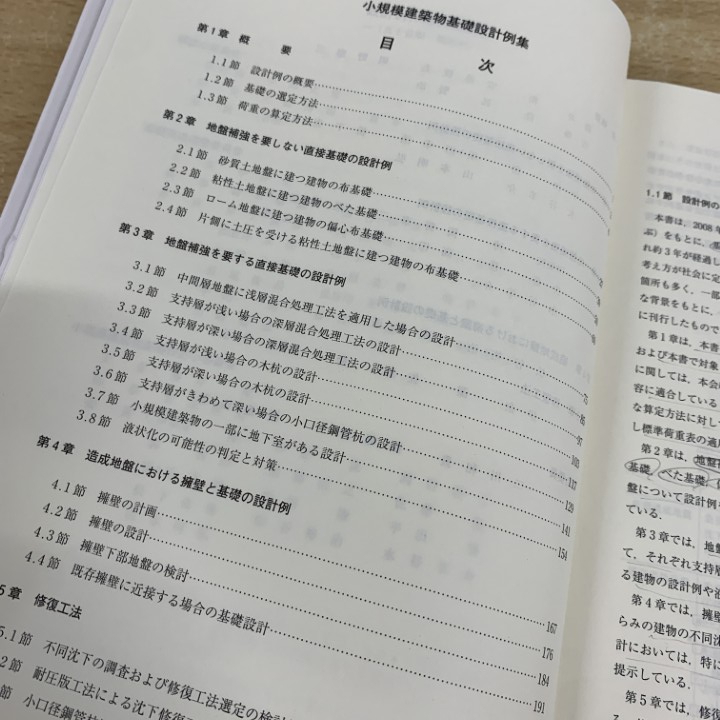 小規模建築物基礎設計例集
目次
第1章 概要
1.1節 設計例の概要
1.2節 基礎の選定方法
1.3節 荷重の算定方法
第2章 地盤補強を要しない直接基礎の設計例
2.1節 砂質土地盤に建つ建物の布基礎
2.2節 粘性土地盤に建つ建物のべた基礎
2.3節 ローム地盤に建つ建物の偏心布基礎
2.4節 片側に土圧を受ける粘性土地盤に建つ建物の布基礎
第3章 地盤補強を要する直接基礎の設計例
3.1節 中間層地盤に浅層混合処理工法を適用した場合の設計
3.2節 支持層が浅い場合の深層混合処理工法の設計
3.3節 支持層が深い場合の深層混合処理工法の設計
3.4節 支持層が浅い場合の木杭の設計
3.5節 支持層が深い場合の木杭の設計 97
3.6節 支持層がきわめて深い場合の小口径鋼管杭の設計
3.7節 小規模建築物の一部に地下室がある設計
3.8節 液状化の可能性の判定と対策 141
154
第4章 造成地盤における擁壁と基礎の設計例
4.1節 擁壁の計画 167
4.2節 擁壁の設計 176
4.3節 擁壁下部地盤の検討 184
4.4節 既存擁壁に近接する場合の基礎設計 191
5章 修復工法
5.1節 不同沈下の調査および修復工法選定の検討
2節 耐圧版工法による沈下修復
節 小口径鋼管杭
1.1節 設計例の
本書は，2008年
ぶ）をもとに，
れ約3年が経過し
考え方が社会に定
箇所も多く，一部
な背景をもとに，
に刊行したもので
第1章は，本書
および本書で対象
に関しては，本会
容に適合している
な算定方法に対して
し標準荷重表の適用
第2章は，地盤
基礎，べた基礎，
盤について設計例を
ている．
第3章では，地盤
て，それぞれ支持層
る建物の設計例や液
第4章では，擁壁
らみの建物の不同沈
計においては，特に
提示している．
第5章では，修復